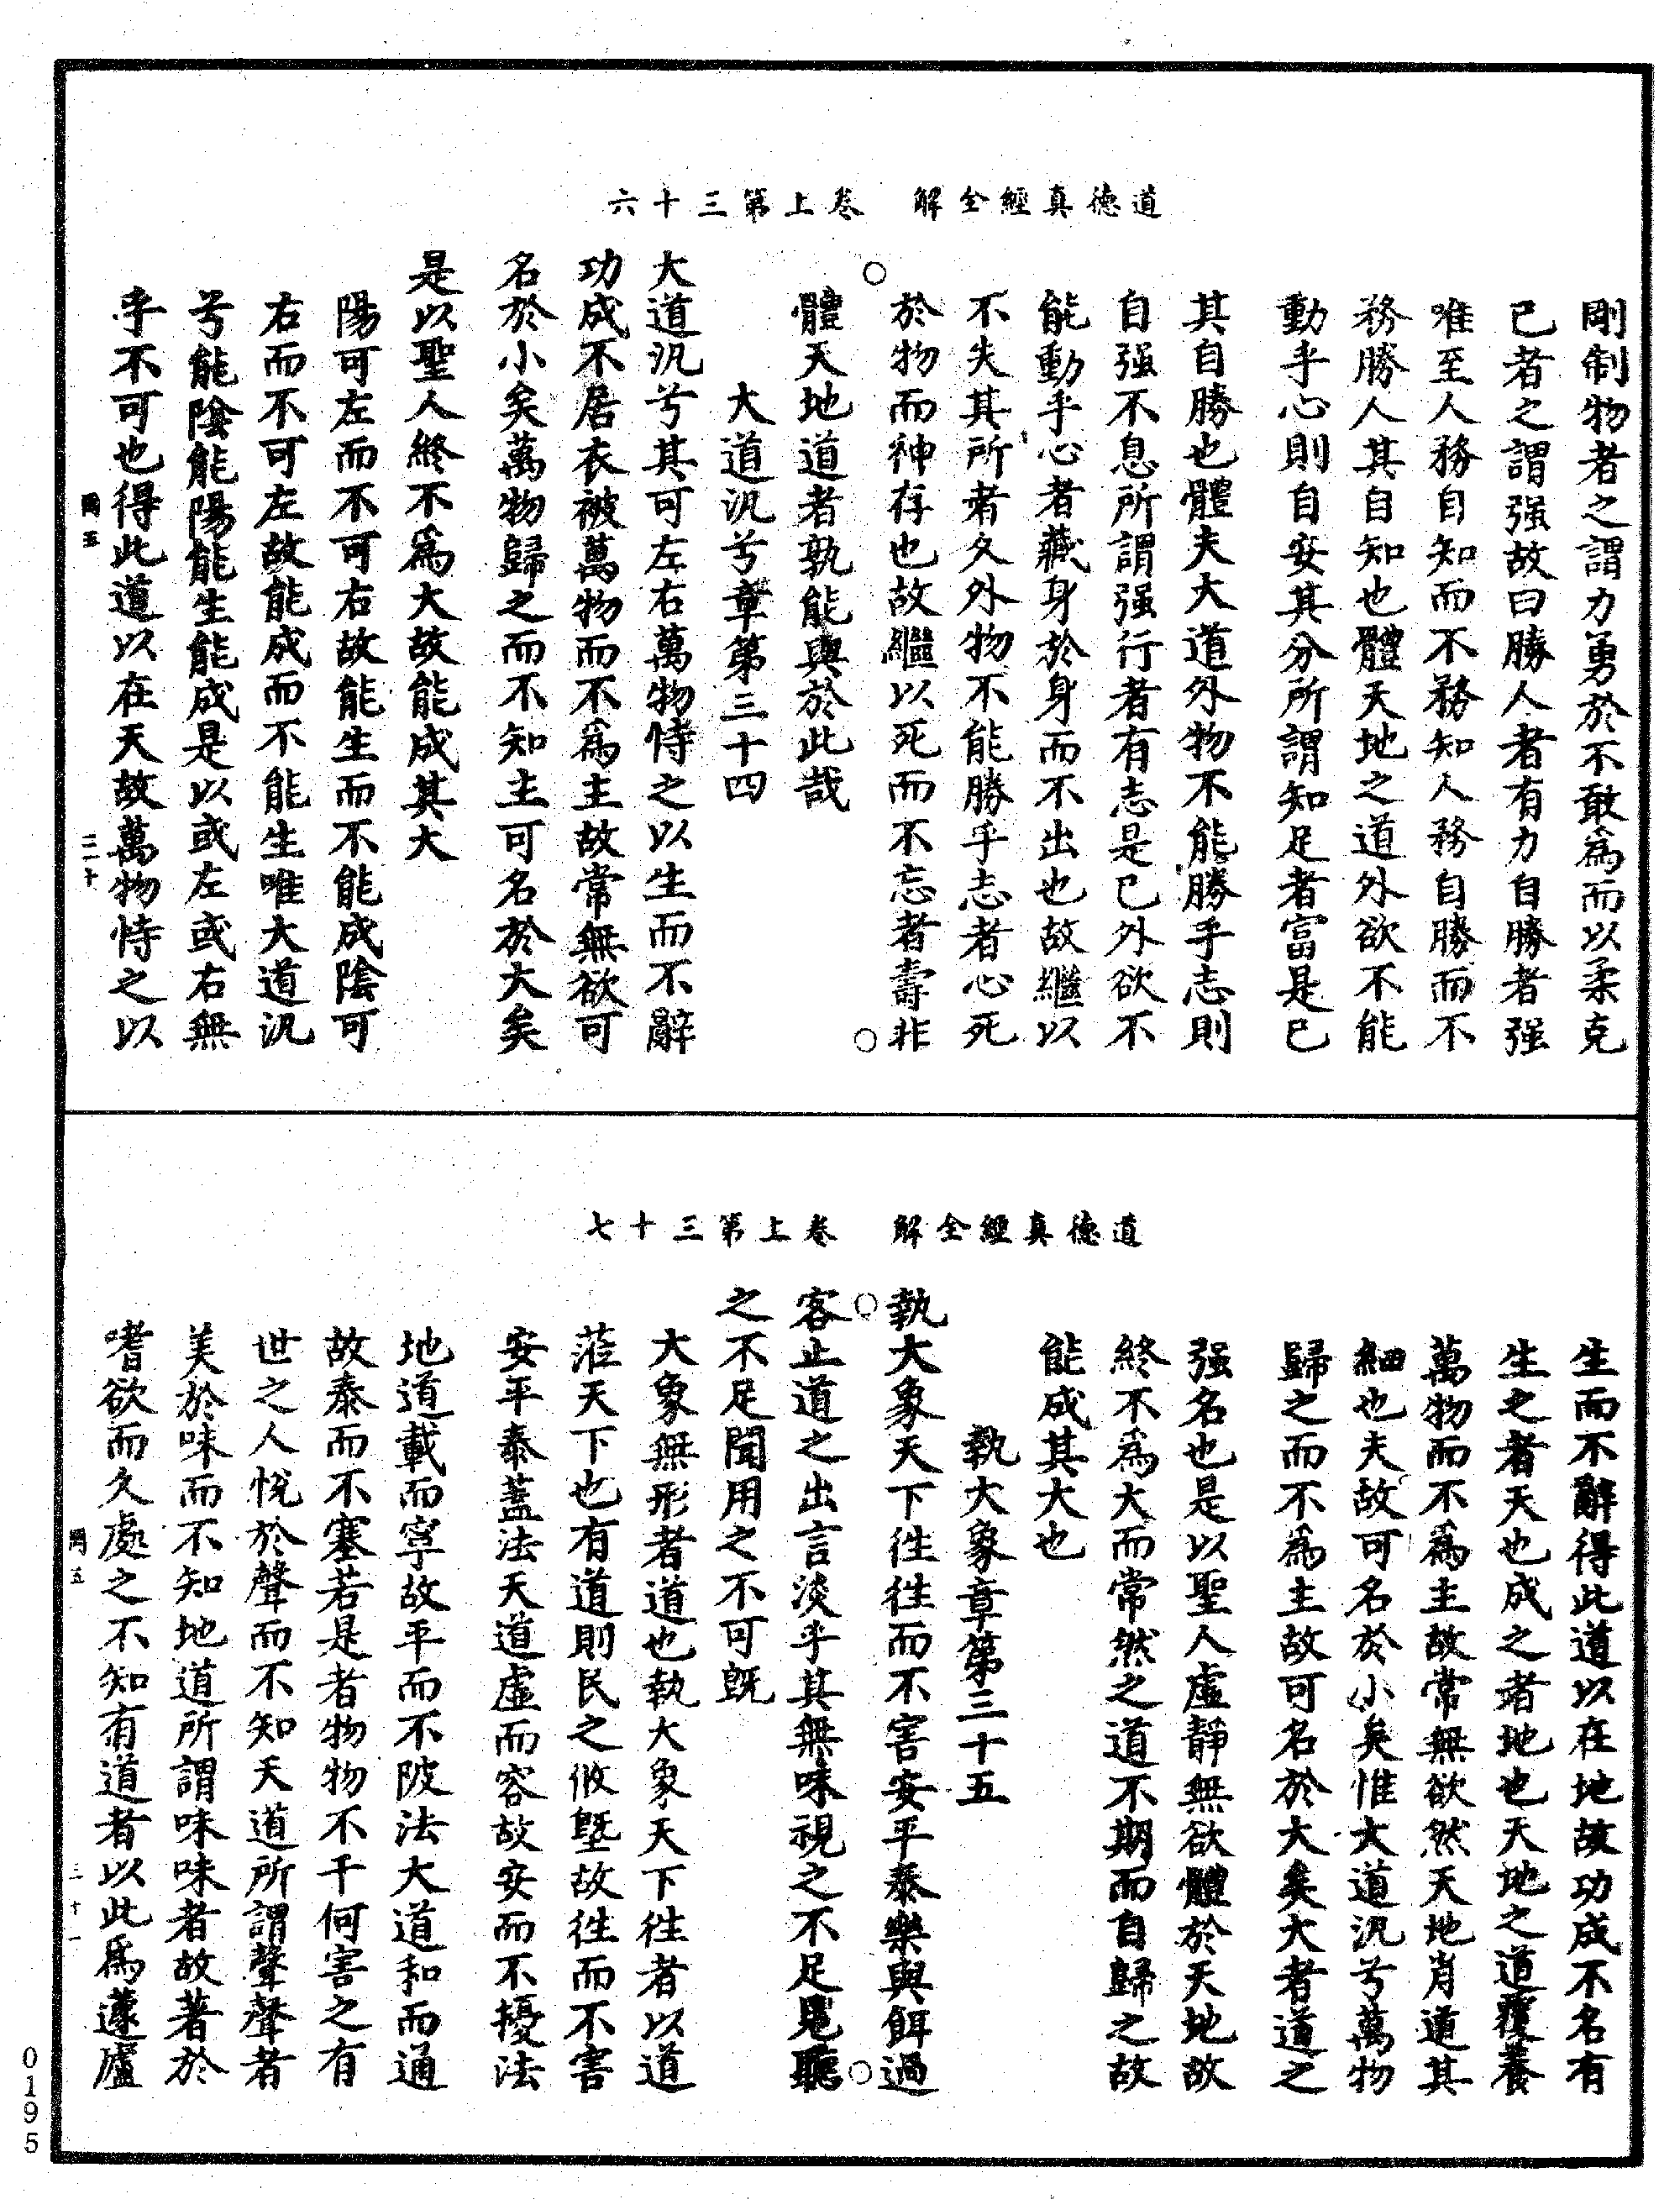 道德真經全解　卷上第三十六
剛制物者之謂力勇於不敢爲而以柔克
己者之謂强故曰勝人者有力自勝者强
唯至人務自知而不務知人務自勝而不
務勝人其自知也體天地之道外欲不能
動乎心則自安其分所謂知足者富是已
其自勝也體夫大道外物不能勝乎志則
自强不息所謂强行者有志是已外欲不
能動乎心者藏身於身而不出也故繼以
不失其所者久外物不能勝乎志者心死
於物而神存也故繼以死而不忘者壽非
體天地道者孰能與於此哉
大道汎兮章第三十四
大道汎兮其可左右萬物恃之以生而不辭
功成不居衣被萬物而不爲主故常無欲可
名於小矣萬物歸之而不知主可名於大矣
是以聖人終不爲大故能成其大
陽可左而不可右故能生而不能成陰可
右而不可左故能成而不能生唯大道汎
兮能陰能陽能生能成是以或左或右無
乎不可也得此道以在天故萬物恃之以
罔五
三十
道德真經全解　卷上第三十七
生而不辭得此道以在地故功成不名有
生之者天也成之者地也天地之道覆養
萬物而不爲主故常無欲然天地肖道其
細也夫故可名於小矣惟大道汎兮萬物
歸之而不爲主故可名於大矣大者道之
强名也是以聖人虛靜無欲體於天地故
終不爲大而常然之道不期而自歸之故
能成其大也
執大象章第三十五
執大象天下徃徃而不害安平泰樂與餌過
客止道之出言淡乎其無味視之不足見聽
之不足聞用之不可旣
大象無形者道也執大象天下徃者以道
莅天下也有道則民之攸墍故徃而不害
安平泰蓋法天道虛而容故安而不擾法
地道載而寧故平而不陂法大道和而通
故泰而不塞若是者物物不干何害之有
世之人悅於聲而不知天道所謂聲聲者
美於味而不知地道所謂味味者故著於
嗜欲而久處之不知有道者以此爲蘧廬
罔五
三十一
0195